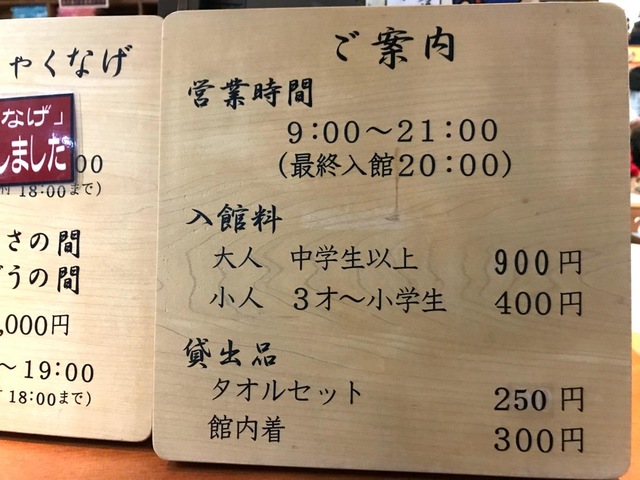 ゃくなげ
なげ」
しました
00
18:00まで)
さの間
うの間
,000円
～19:00
18:00まで)
ご案内
営業時間
9:00～21:00
(最終入館20:00)
入館料
大人 中学生以上 900円
小人 3才～小学生 400円
貸出品
タオルセット 250円
館内着 300円